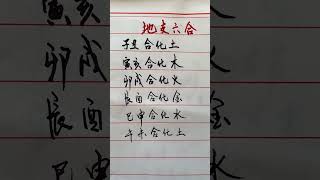 地支六合
子丑合化土
寅亥合化木
卯戌合化火
辰酉合化金
巳申合化水
午未合化土